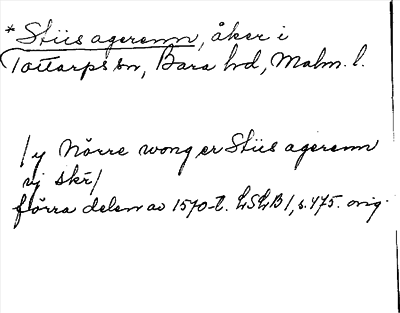 *Stiis agerenn, åker i
Tottarps sn, Bara hd, Malm. l.
/y Nörre wong er Stiis agerenn
vj skr/
förra delen av 1570-t. LSLB1, s. 475. orig.